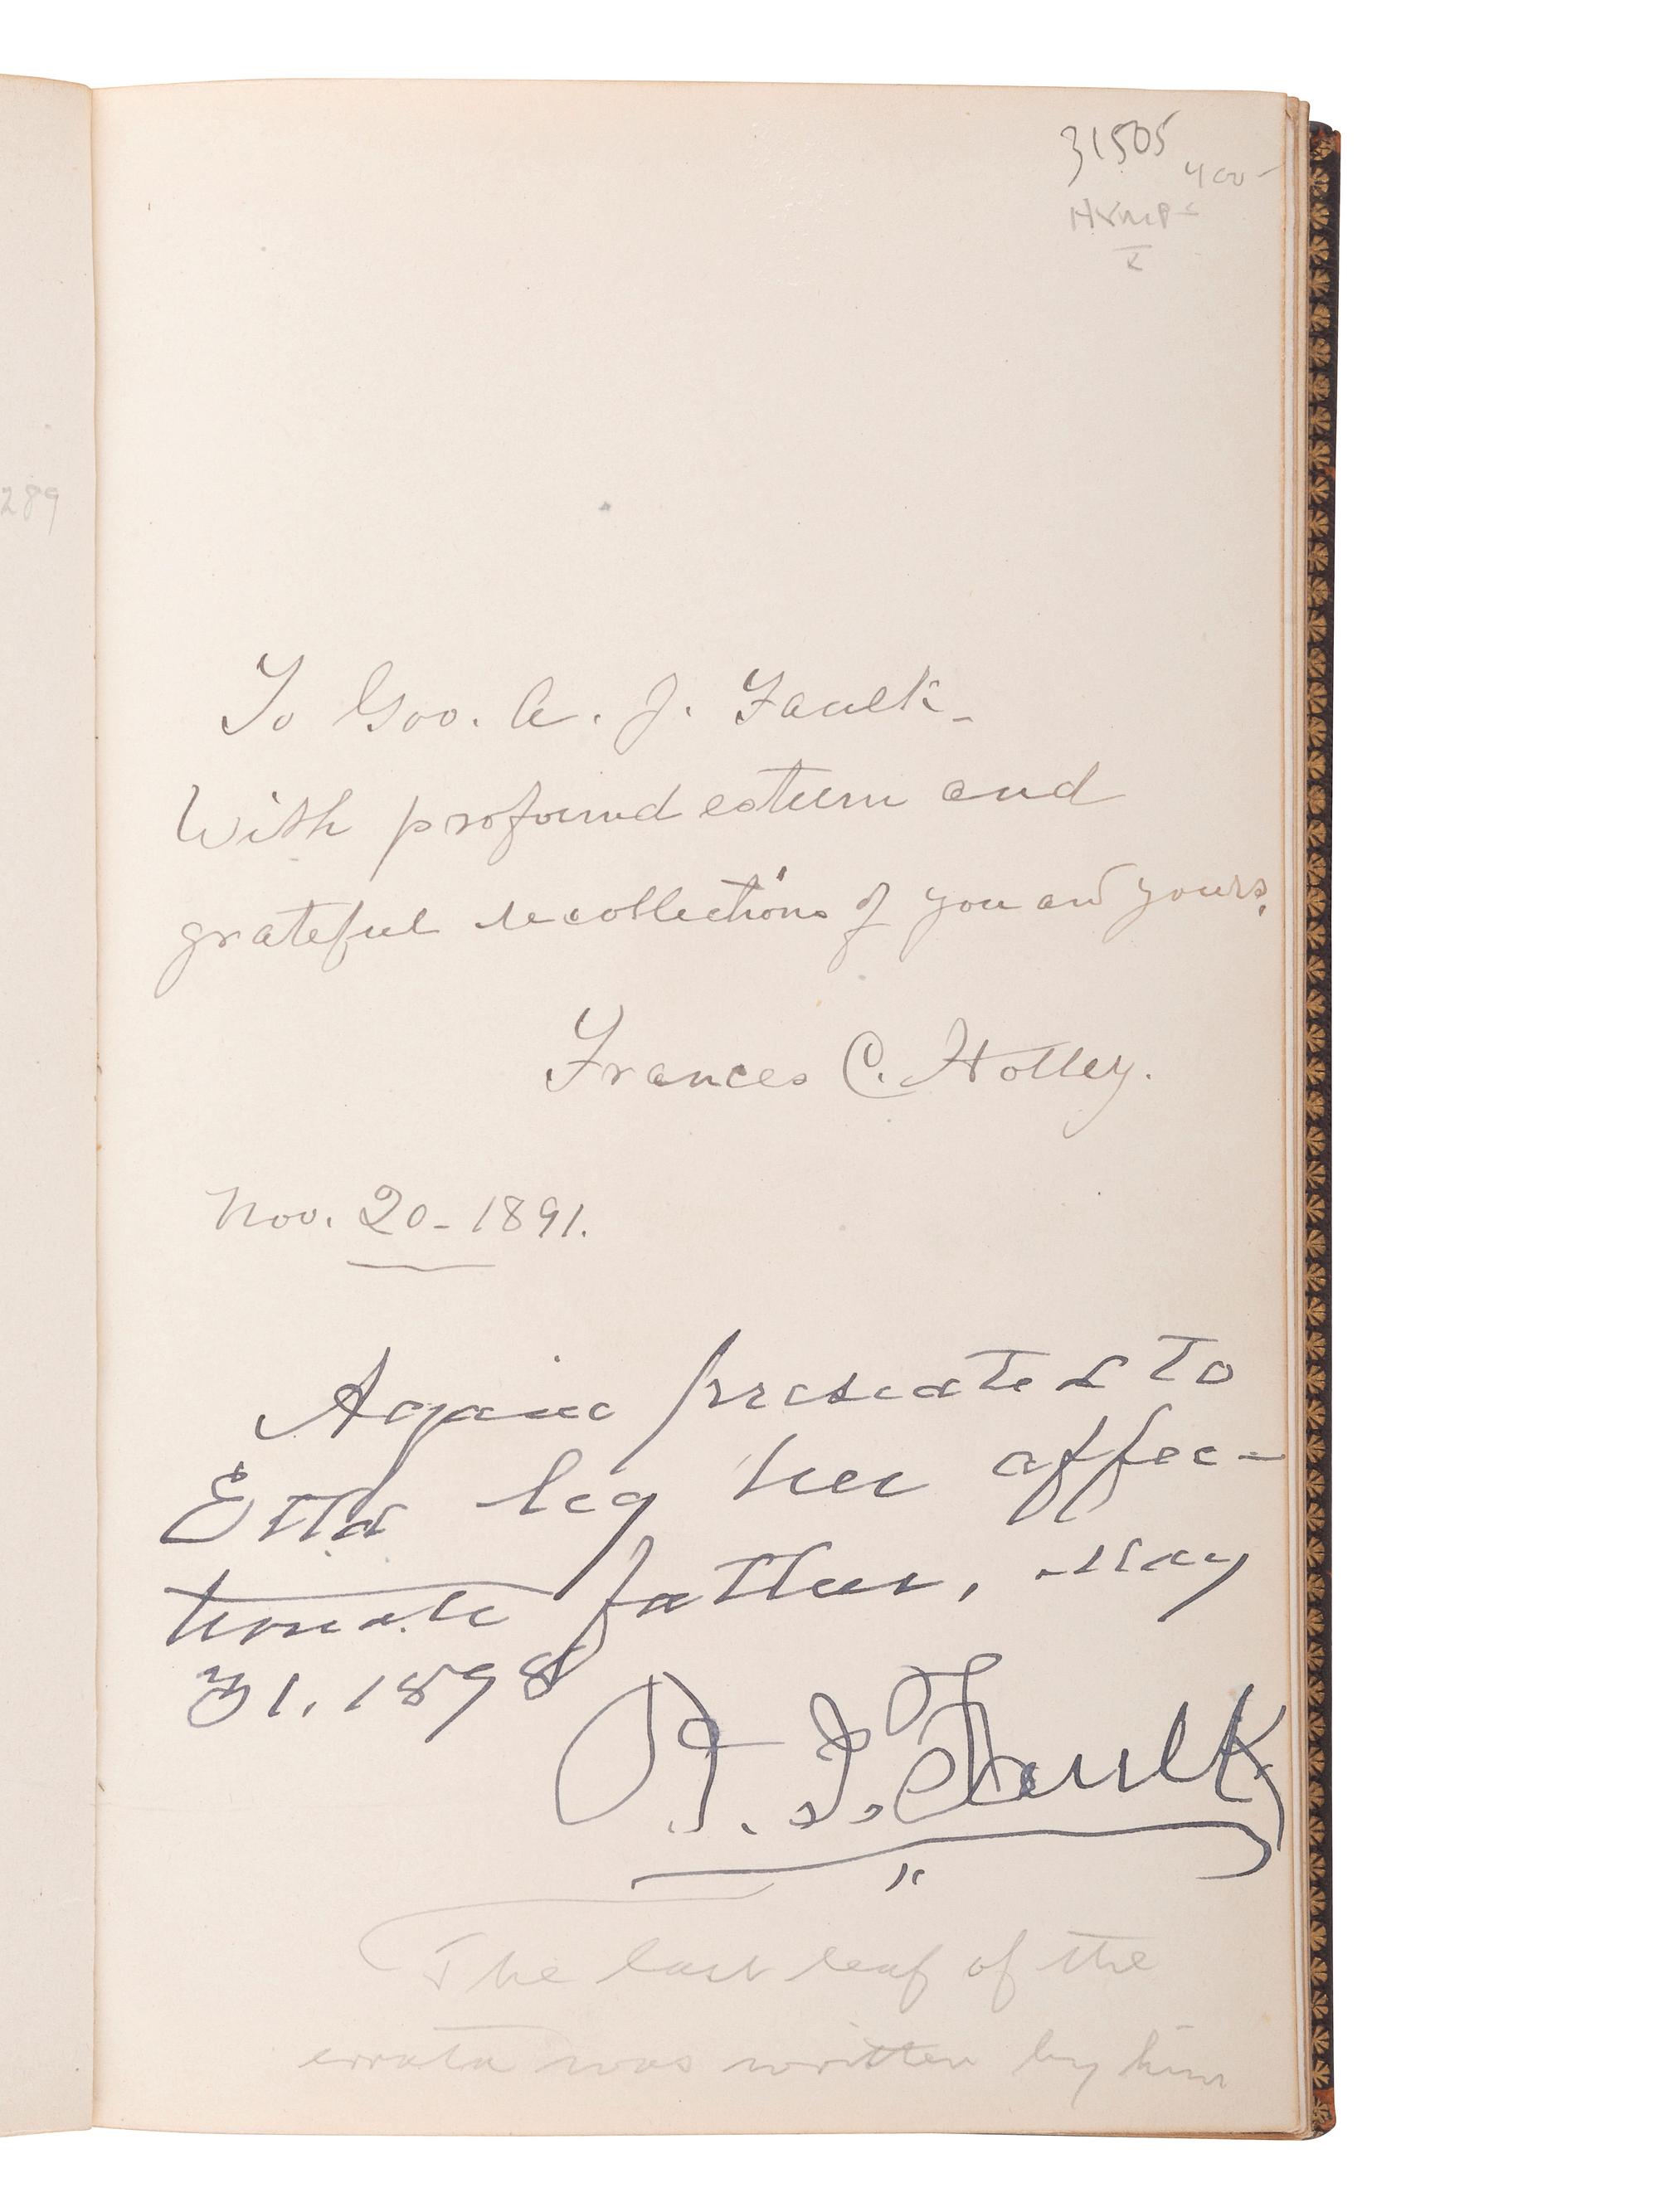 31505
400-
289
To Gov. A. J. Faulk-
With profound esteem and
grateful recollections of you and yours.
Frances C. Holley.
Nov. 20-1891.
Again presented to
Etta by her affec-
tionate father, May
31, 1898
A. J. Faulk
The last leaf of the
errata was written by him